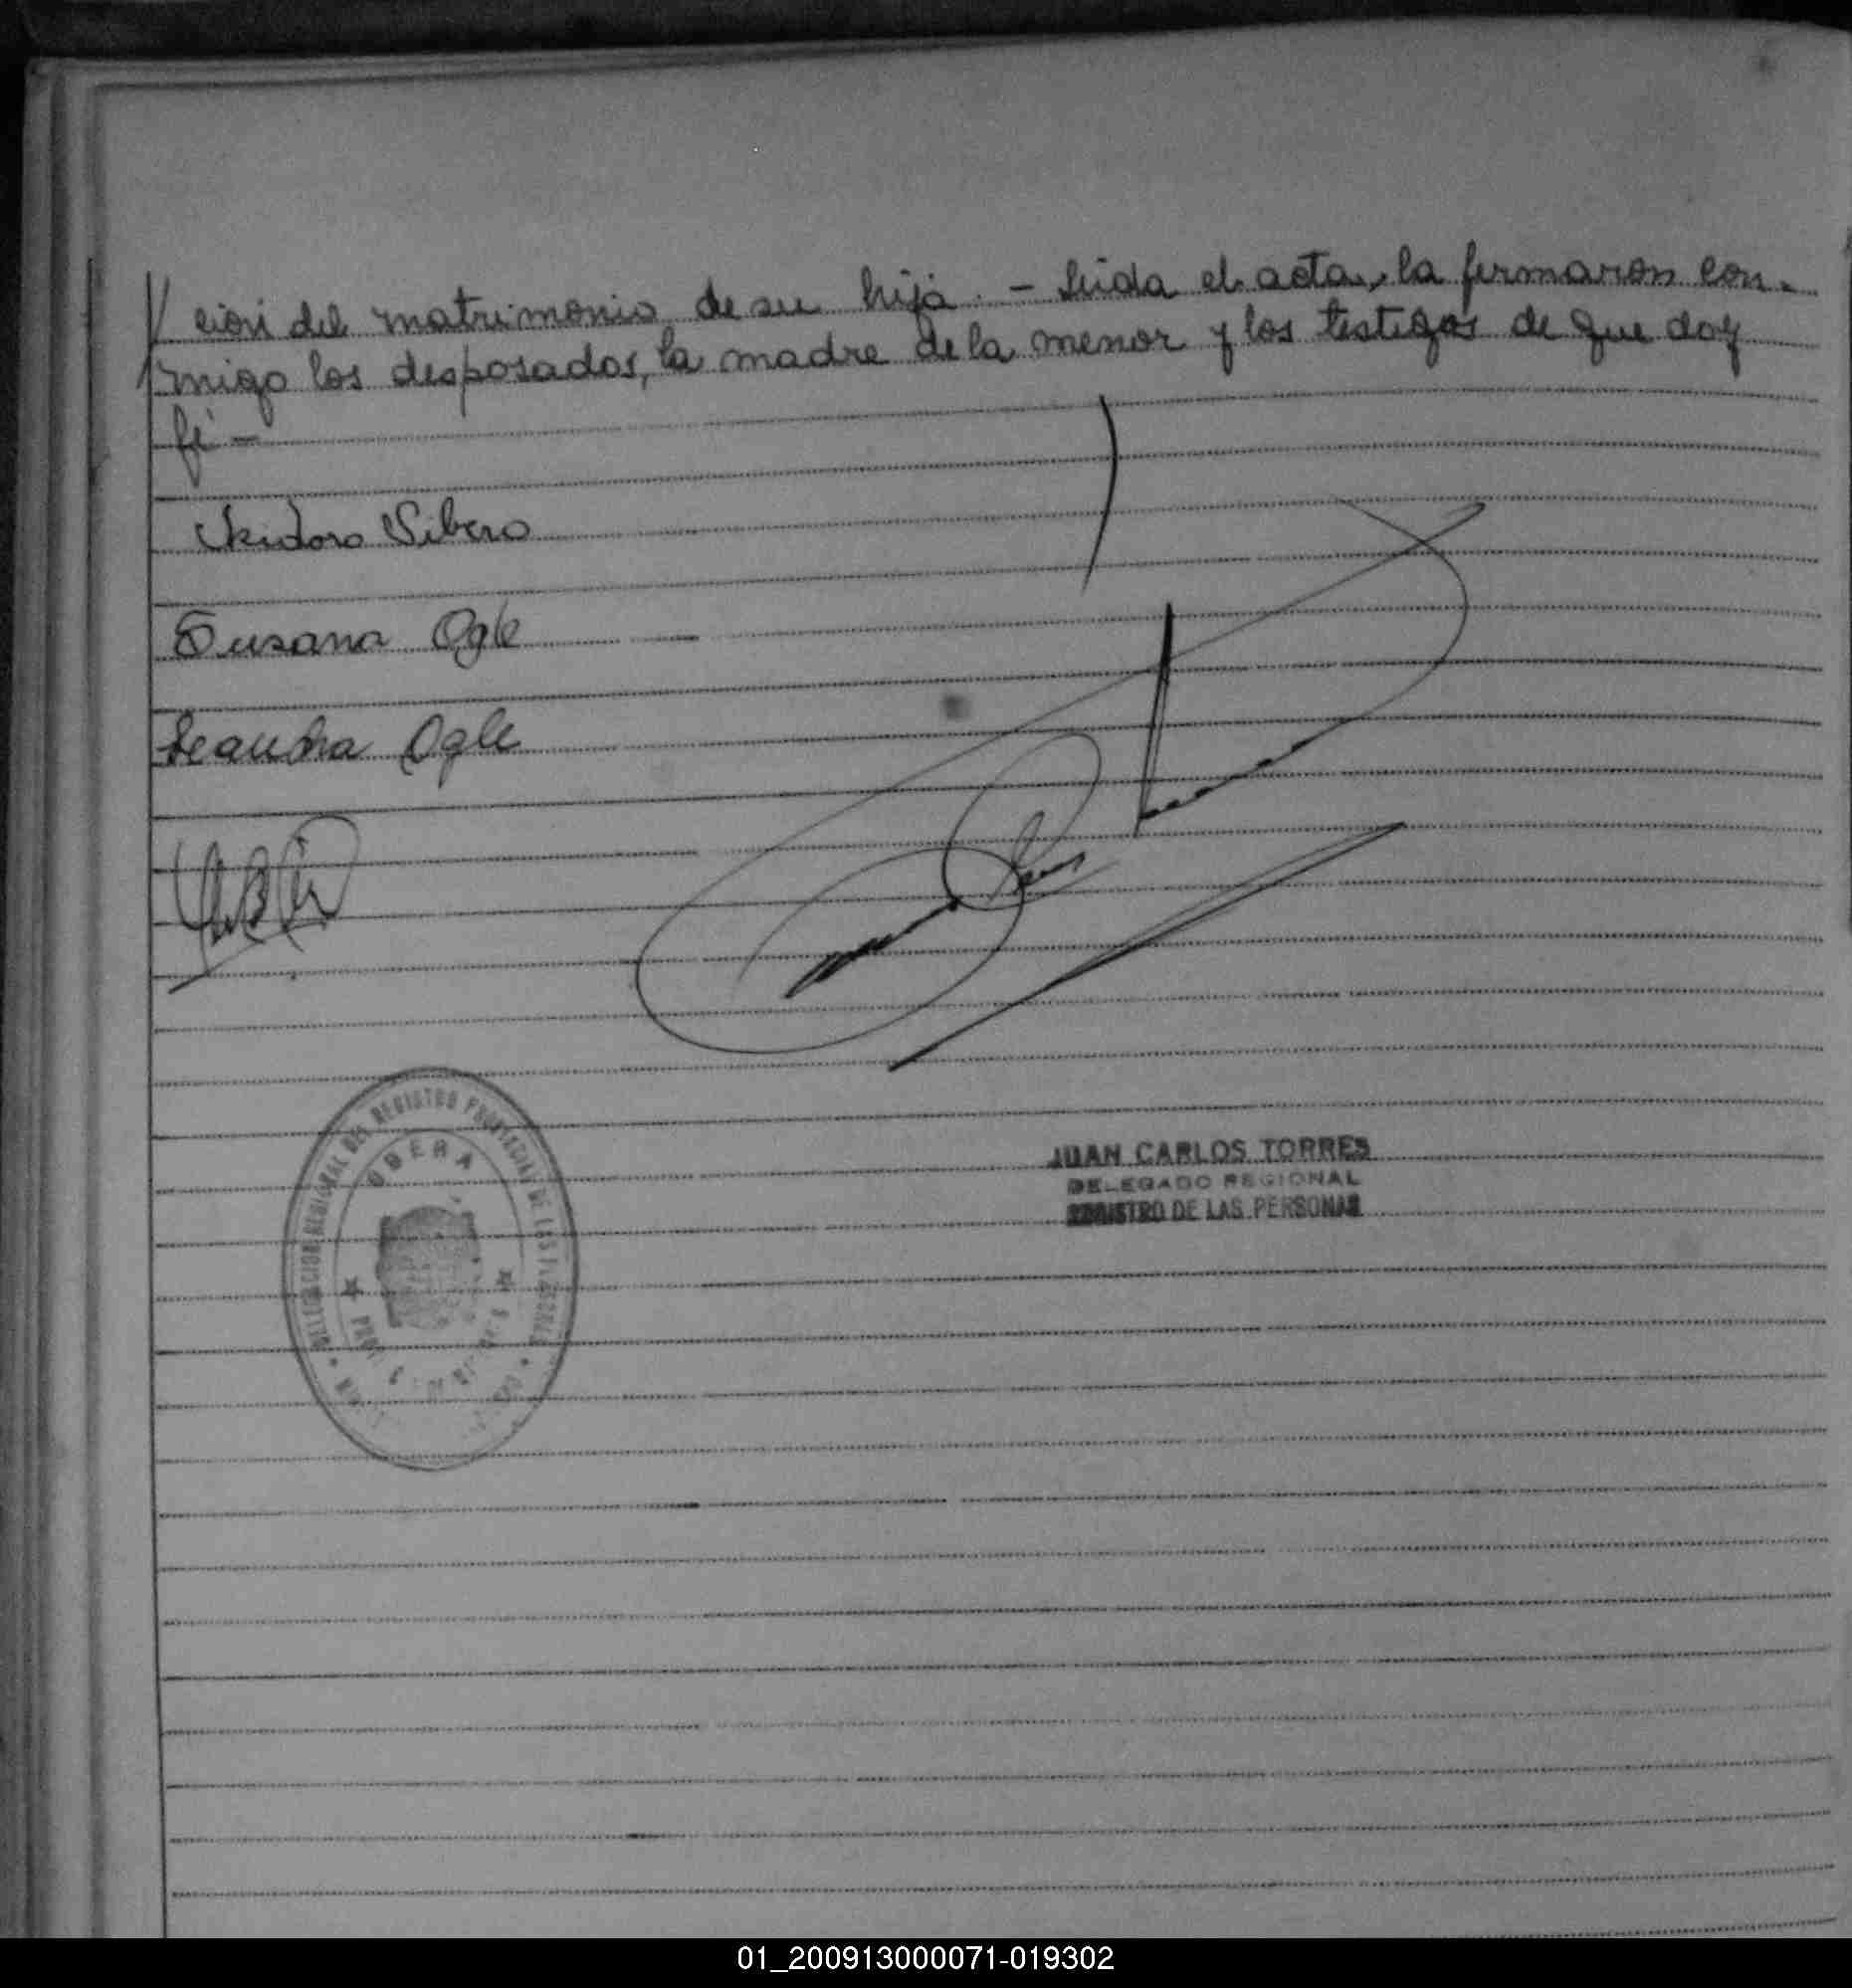 ción del matrimonio de su hija. - Leida el acta, la firmaron con-
migo los desposados, la madre de la menor y los testigos de que doy
fé -
Isidoro Sibero
Susana Ogle
Leandra Ogle
DELEGACION REGIONAL DEL REGISTRO PROVINCIAL DE LAS PERSONAS
OBERA
JUAN CARLOS TORRES
DELEGADO REGIONAL
REGISTRO DE LAS PERSONAS
01_200913000071-019302